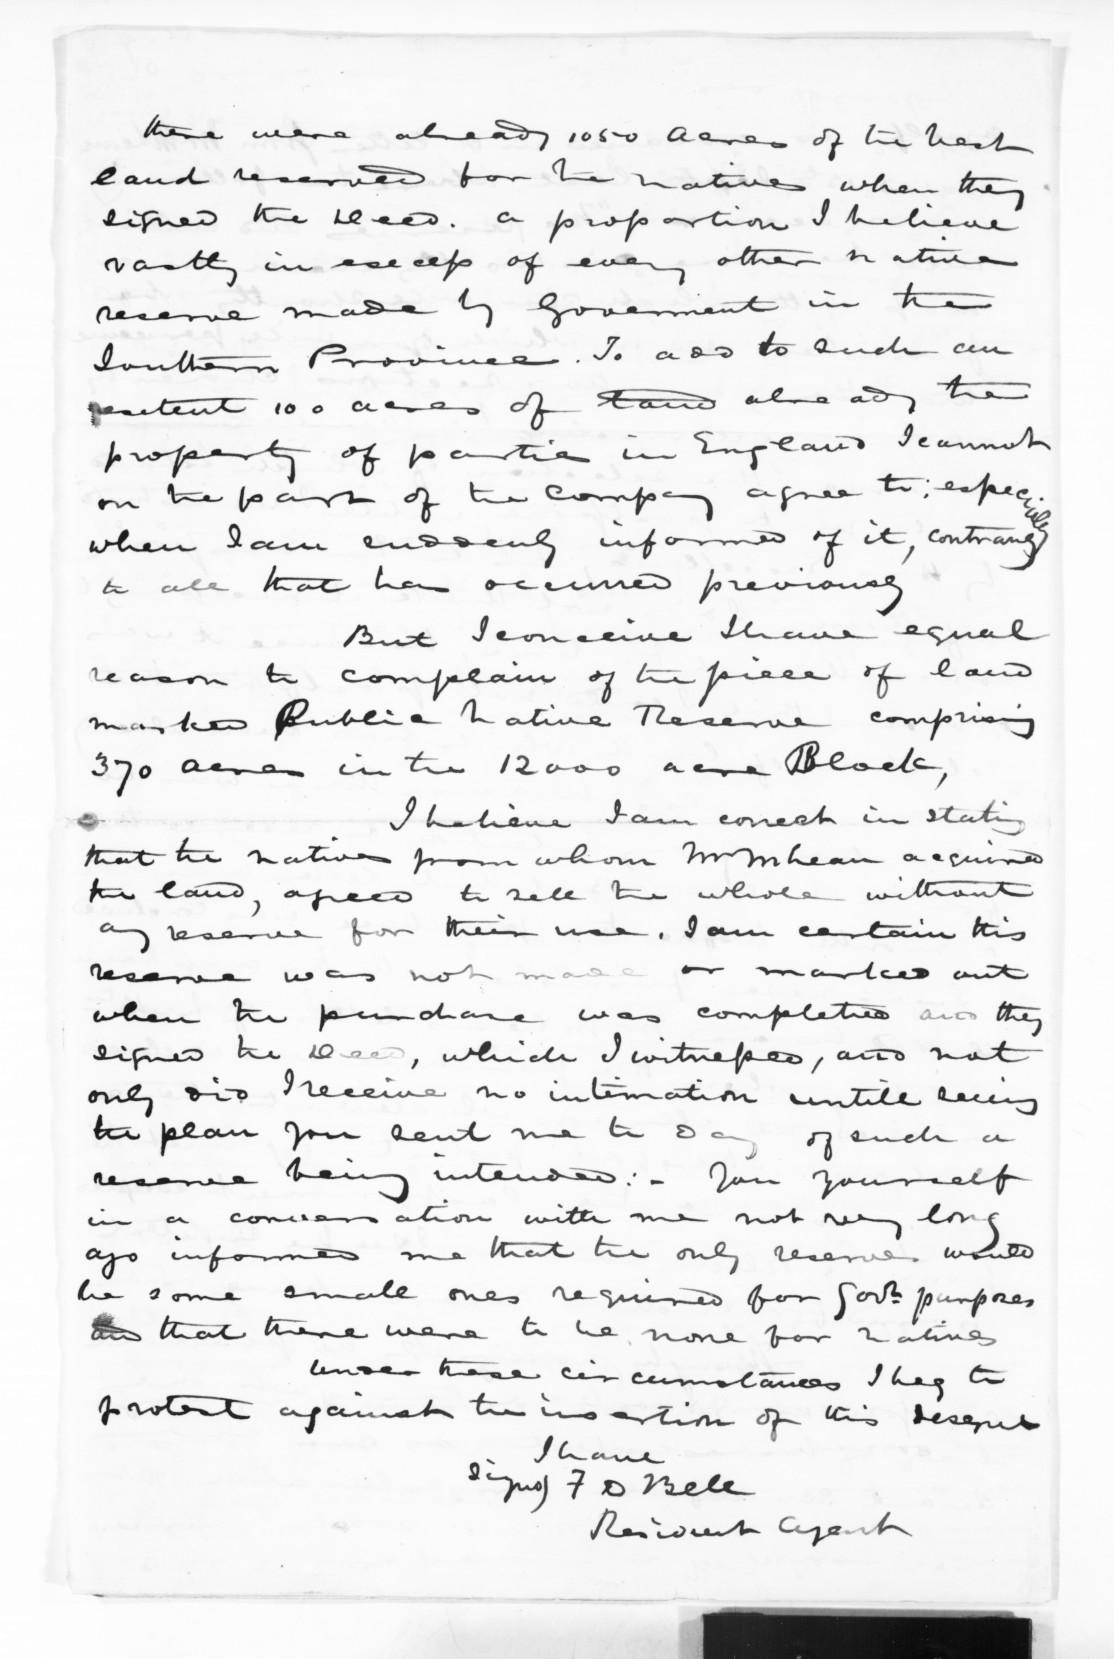 there were already 1050 acres of the best
land reserved for the natives when they
signed the Deed. a proportion I believe
vastly in excess of every other native
reserve made by Goverment in the
Southern Province. To add to such an
extent 100 acres of land already the
property of parties in England I cannot
on the part of the Company agree to; especially
when I am suddenly informed of it, contrary
to all that has occurred previously
But I conceive I have equal
reason to complain of the piece of land
marked Public Native Reserve comprising
370 acres in the 12000 acre Block,
I believe I am correct in stating
that the natives from whom Mr McLean acquired
the land, agreed to sell the whole without
any reserve for their use. I am certain this
reserve was not made or marked out
when the purchase was completed and they
signed the Deed, which I witnessed, and not
only did I receive no intimation untill seeing
the plan you sent me to day of such a
reserve being intended:- You yourself
in a conversation with me not very long
ago informed me that the only reserves would
be some small ones required for Govt purposes
and that there were to be none for natives
Under these circumstances I beg to
protest against the insertion of this
I have
Signed) F D Bell
Resident Agent